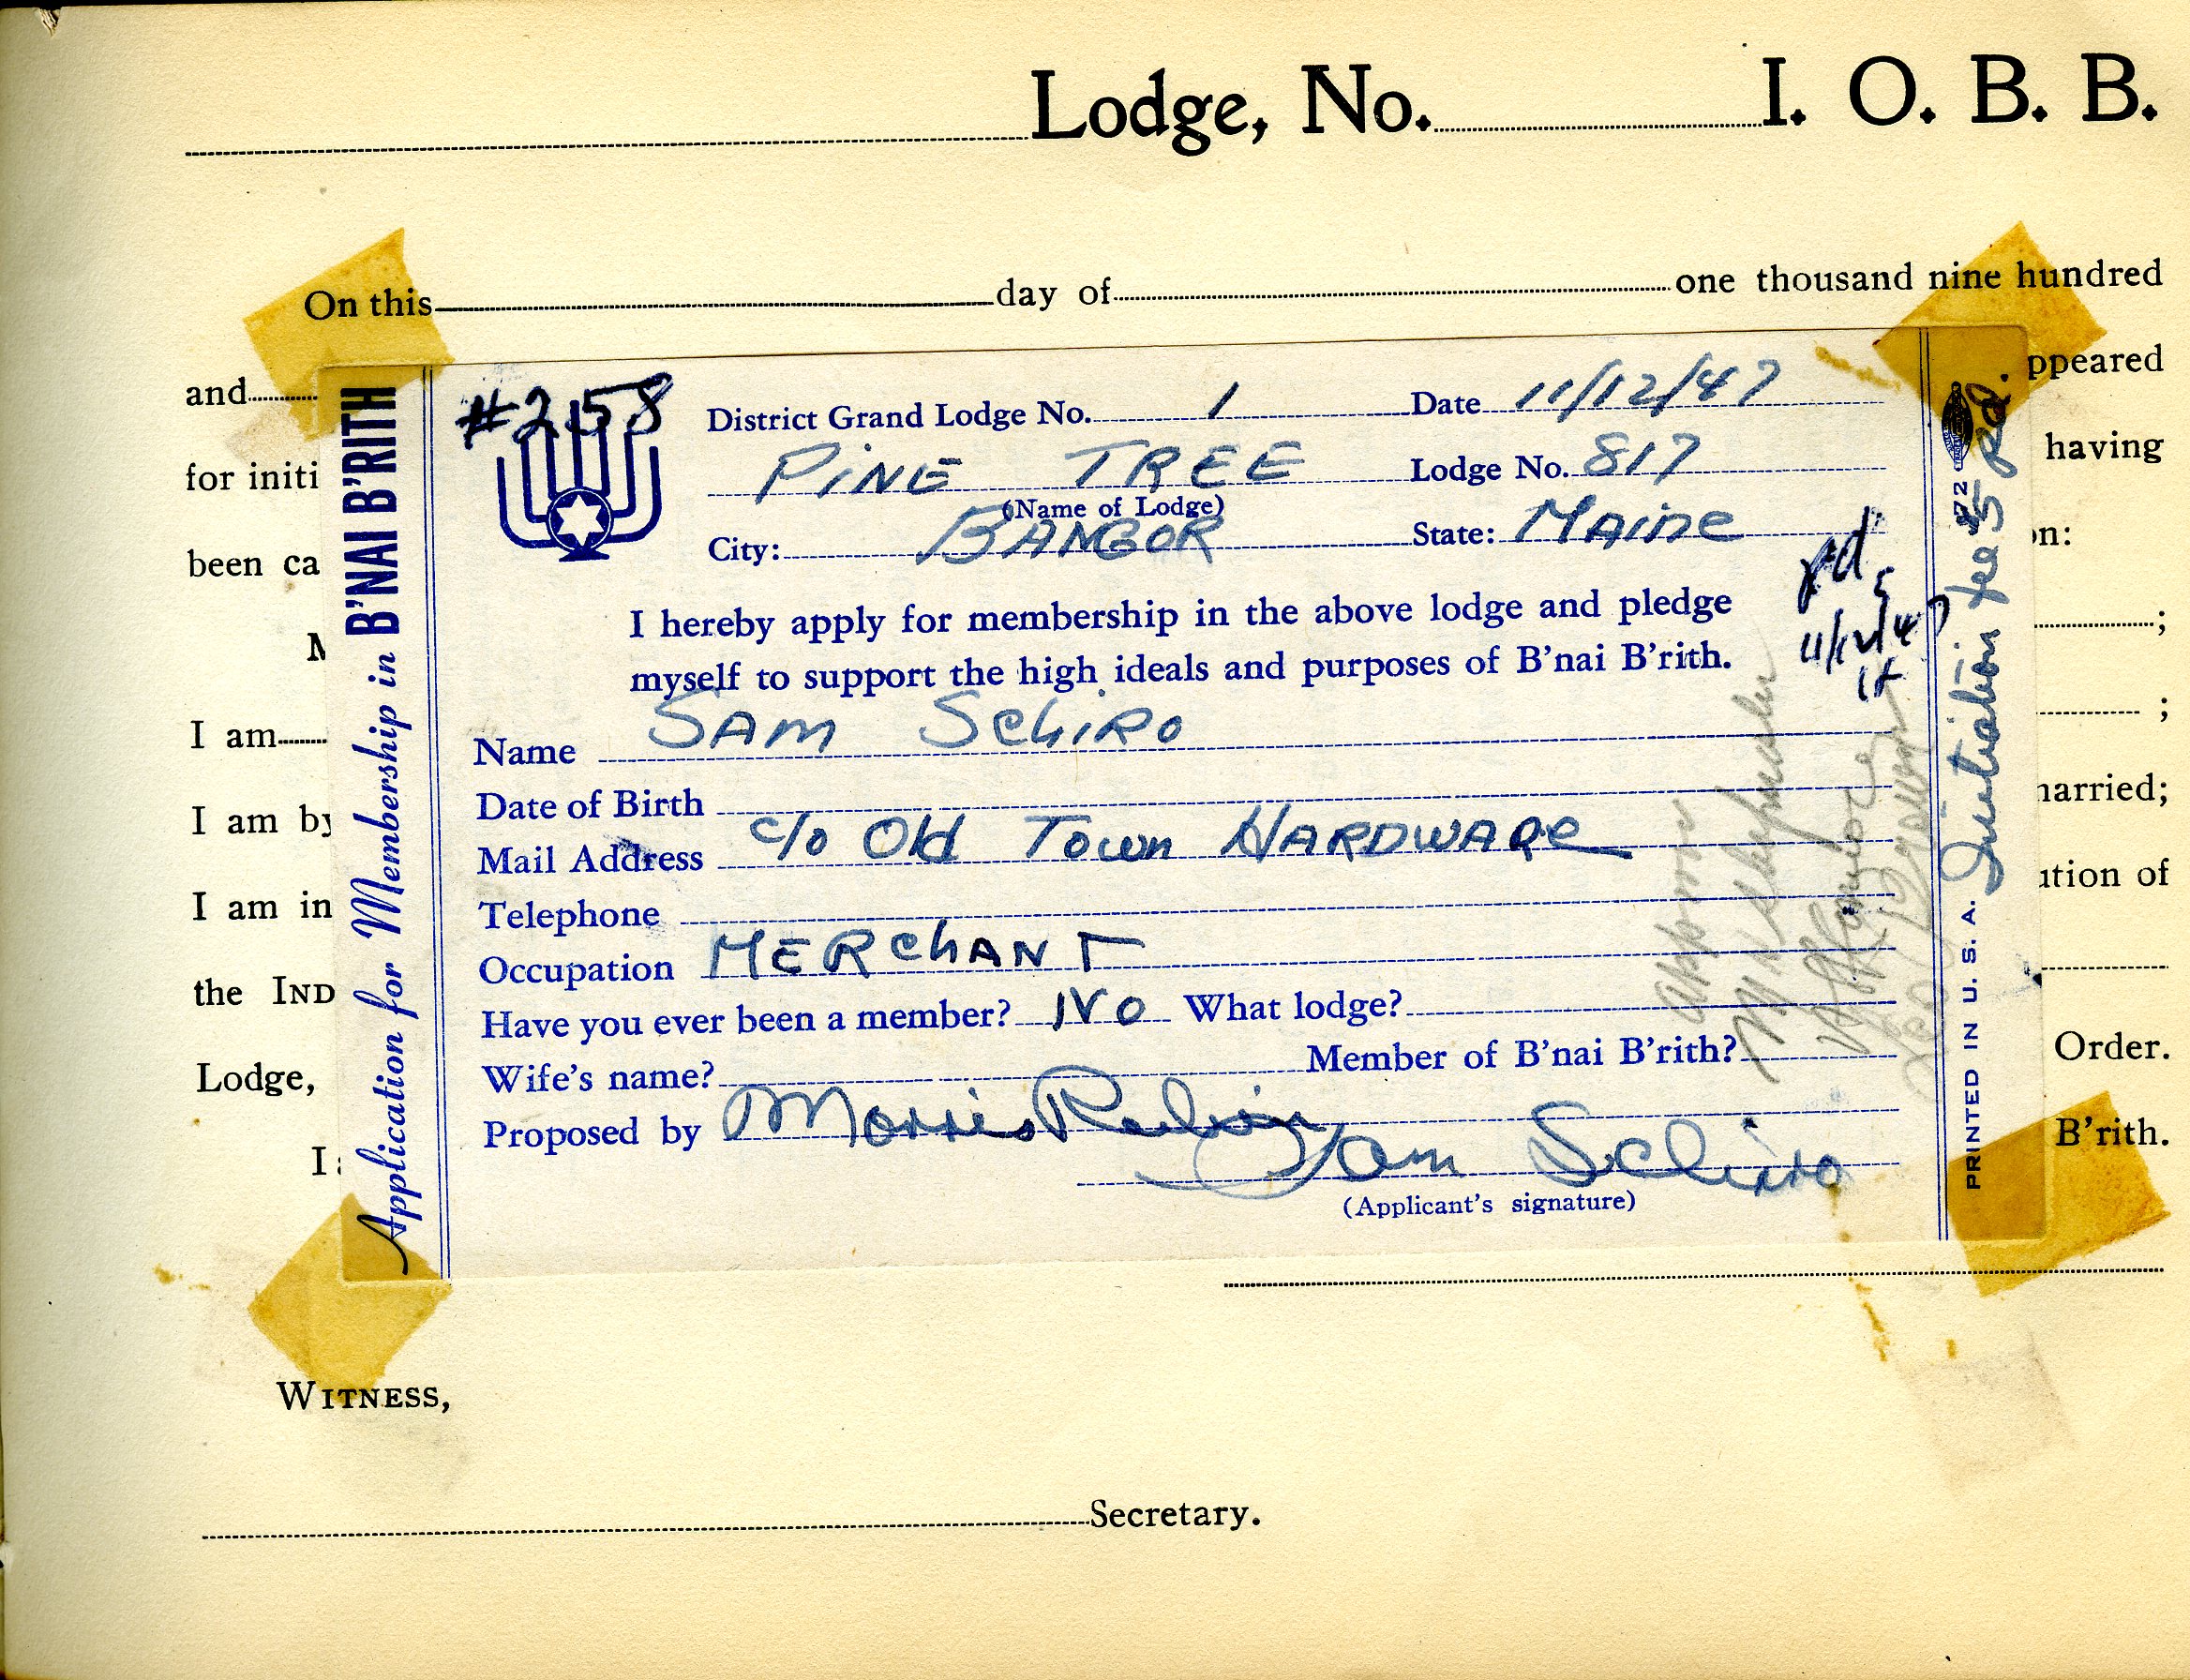 Lodge, No. I. O. B. B.
On this day of one thousand nine hundred
and ppeared
for initi having
been ca on:
M ;
I am ;
I am by narried;
I am in ution of
the IND
Lodge, Order.
I a B'rith.
Application for Membership in B'NAI B'RITH
#258
District Grand Lodge No. 1 Date 11/12/47
PINE TREE Lodge No. 817
(Name of Lodge)
City: BANGOR State: Maine
I hereby apply for membership in the above lodge and pledge
myself to support the high ideals and purposes of B'nai B'rith.
Name SAM SCHIRO
Date of Birth
Mail Address c/o Old Town HARDWARE
Telephone
Occupation MERCHANT
Have you ever been a member? NO What lodge?
Wife's name? Member of B'nai B'rith?
Proposed by Morris Rubin
Sam Schiro
(Applicant's signature)
pd 5
11/12/47
PRINTED IN U. S. A. 72
Initiation fee $5 pd.
WITNESS,
Secretary.